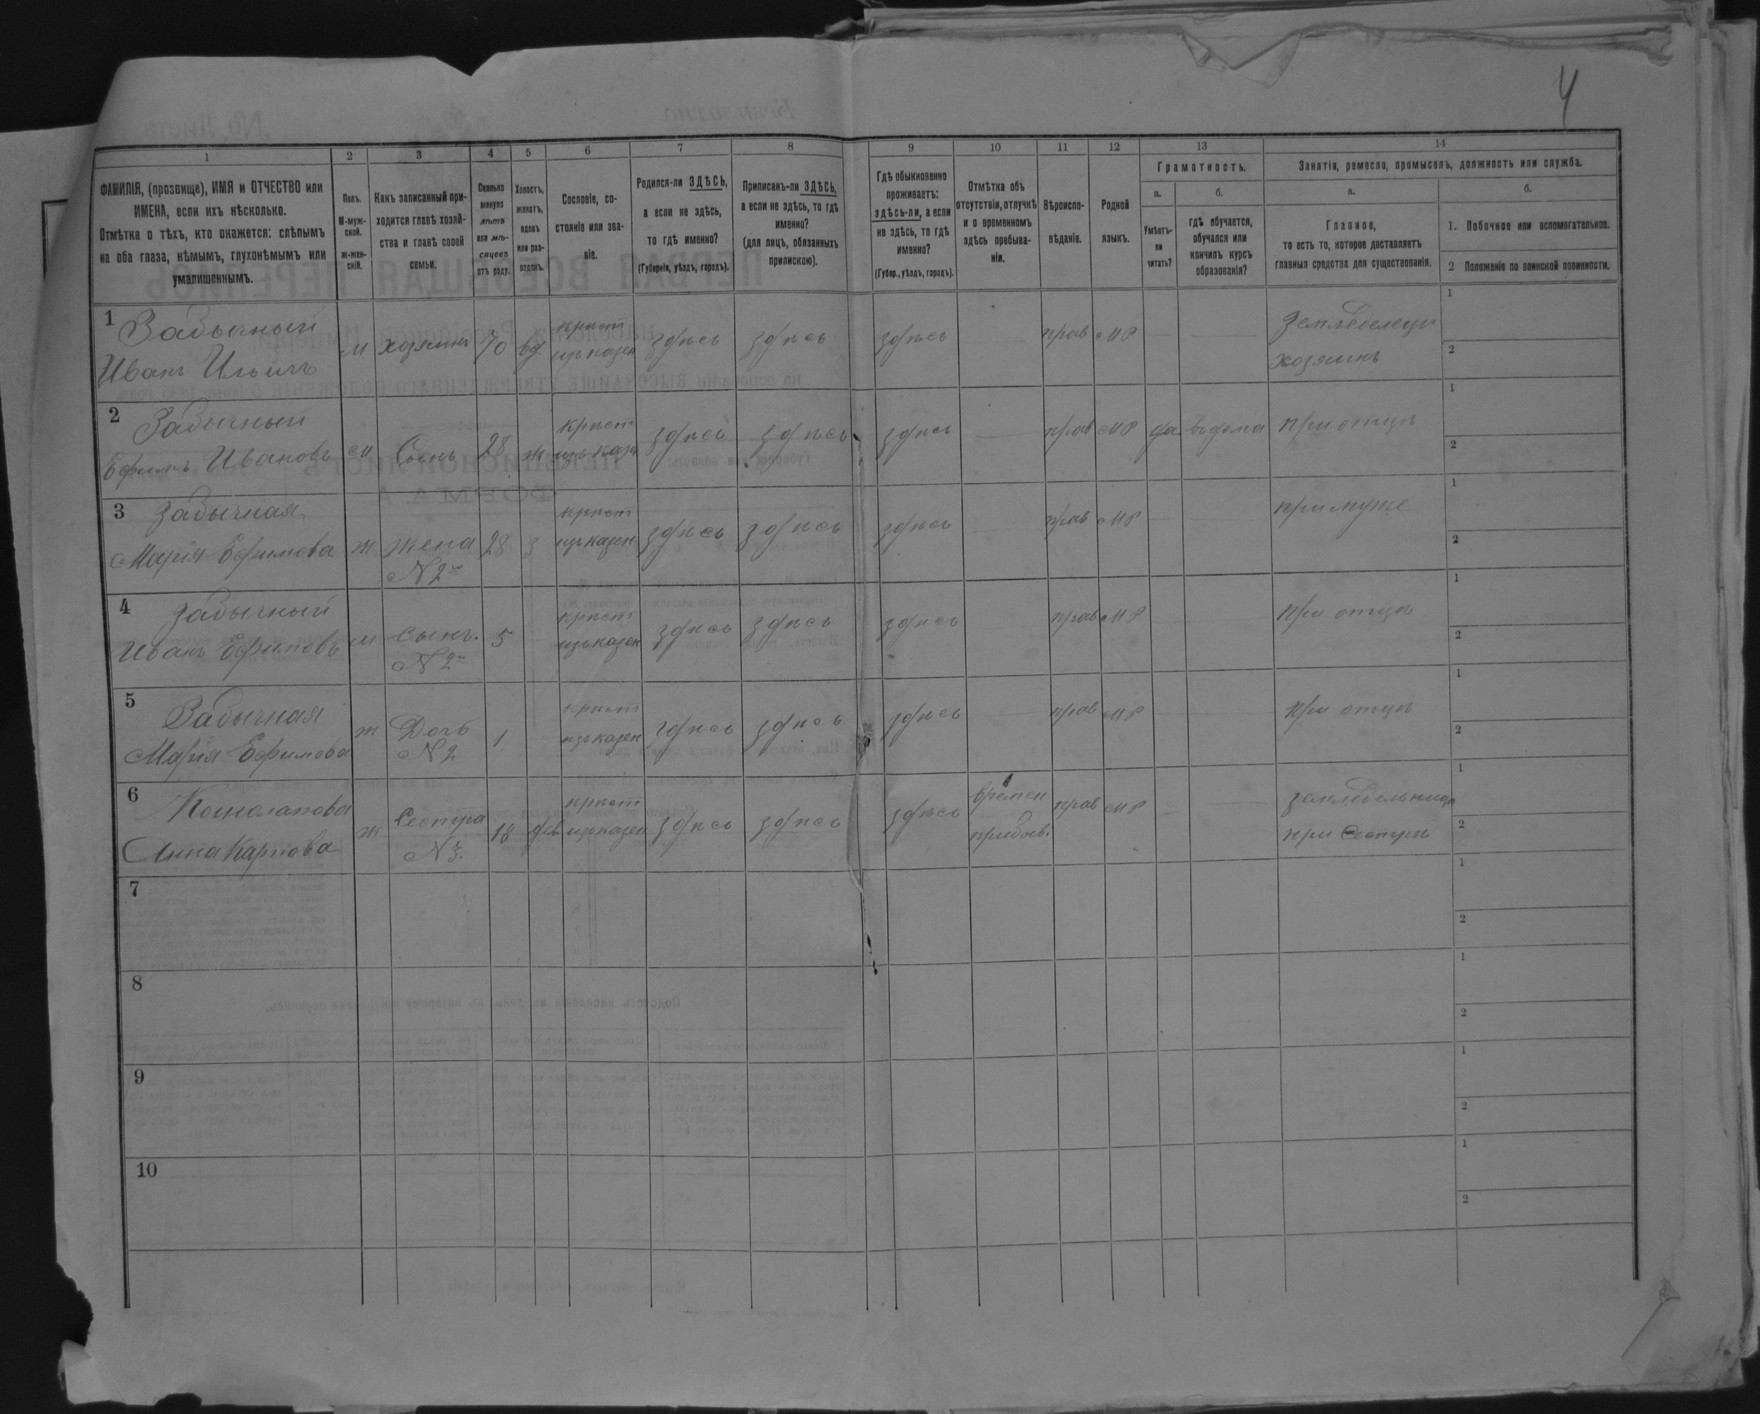 4
1 2 3 4 5 6 7 8 9 10 11 12 13 14
ФАМИЛІЯ, (прозвище), ИМЯ и ОТЧЕСТВО или
ИМЕНА, если ихъ нѣсколько.
Отмѣтка о тѣхъ, кто окажется: слѣпымъ
на оба глаза, нѣмымъ, глухонѣмымъ или
умалишеннымъ.
Полъ.
М-муж-
ской.
Ж-жен-
скій.
Какъ записанный при-
ходится главѣ хозяй-
ства и главѣ своей
семьи.
Сколько
минуло
лѣтъ
или мѣ-
сяцевъ
отъ роду.
Холостъ,
женатъ,
вдовъ
или раз-
веденъ.
Сословіе, со-
стояніе или зва-
ніе.
Родился-ли ЗДѢСЬ,
а если не здѣсь,
то гдѣ именно?
(Губернія, уѣздъ, городъ).
Приписанъ-ли ЗДѢСЬ,
а если не здѣсь, то гдѣ
именно?
(для лицъ, обязанныхъ
припискою).
Гдѣ обыкновенно
проживаетъ:
здѣсь-ли, а если
не здѣсь, то гдѣ
именно?
(Губер., уѣздъ, городъ).
Отмѣтка объ
отсутствіи, отлучкѣ
и о временномъ
здѣсь пребыва-
ніи.
Вѣроиспо-
вѣданіе.
Родной
языкъ.
Грамотность.
а.
Умѣетъ-
ли
читать?
б.
гдѣ обучается,
обучался или
кончилъ курсъ
образованія?
Занятія, ремесло, промыселъ, должность или служба.
а.
Главное,
то есть то, которое доставляетъ
главныя средства для существованія.
б.
1. Побочное или вспомогательное.
2 Положеніе по воинской повинности.
1 Забычный
Иванъ Ильичъ
м хозяинъ 70 вд.
крест
изъ казен
здѣсь здѣсь здѣсь — прав МР — —
земледелецъ
хозяинъ
1
2
2 Забычный
Ефимъ Ивановъ
м Сынъ 28 ж
крест
изъ казен
здѣсь здѣсь здѣсь — прав МР да. въ дома при отцѣ
1
2
3 Забычная
Марія Ефимова
ж жена
№ 2го
28 з
крест
изъ казен
здѣсь здѣсь здѣсь — прав МР — — при муже
1
2
4 Забычный
Иванъ Ефимовъ
м сынъ.
№ 2го
5
крест
изъ казен
здѣсь здѣсь здѣсь — прав МР — — при отцѣ
1
2
5 Забычная
Марія Ефимова
ж Дочь
№ 2
1 —
крест
изъ казен
здѣсь здѣсь здѣсь — прав МР — — при отцѣ
1
2
6
Анна Карпова
ж Сестра
№ 3.
18 дѣв
крест
изъ казен
здѣсь здѣсь здѣсь
времен
прибыв.
прав МР — —
при сестрѣ
1
2
7
1
2
8
1
2
9
1
2
10
1
2